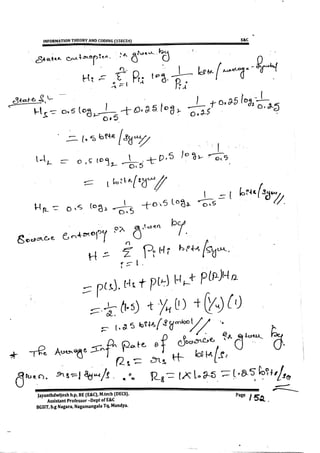 INFORMATION THEORY AND CODING (15EC54) E&C
States entropies is given by
Hi = Σ Pi log 1/Pi bits/message-symbol
State S,
Hs = 0.5 log2 1/0.5 + 0.25 log2 1/0.25 + 0.25 log2 1/0.25
= 1.5 bits/sym//
HL = 0.5 log2 1/0.5 + 0.5 log2 1/0.5
= 1 bits/sym//
HR = 0.5 log2 1/0.5 + 0.5 log2 1/0.5 = 1 bits/sym//
Source entropy is given by
H = Σ Pi Hi bits/sym.
= P(s). Hs + P(L) HL + P(R) HR
= 1/2 (1.5) + 1/4 (1) + (1/4) (1)
= 1.25 bits/symbol//
* The Average Infn Rate of Source is given by
Rs = rs H bits/s.
given. rs = 1 sym/s ∴ Rs = 1 X 1.25 = 1.25 bits/se
Jayanthdwijesh h.p, BE (E&C), M.tech (DECS). Page 152
Assistant Professor -Dept of E&C
BGSIT, b.g Nagara, Nagamangala Tq, Mandya.